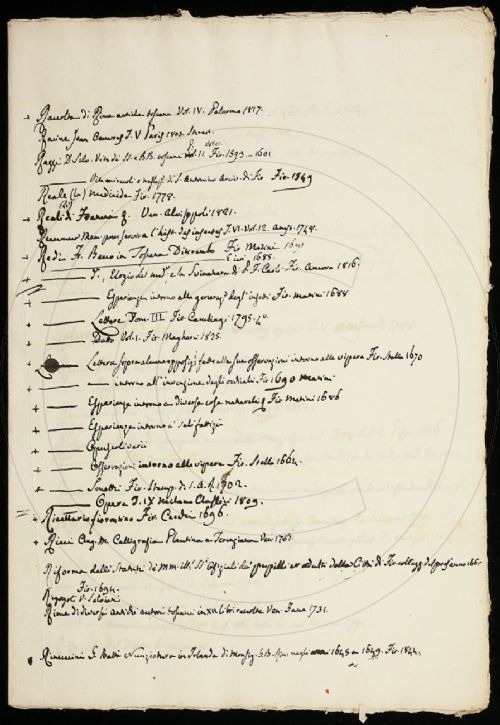 + Raccolta di Rime antiche toscane Vol. IV. Palermo 1817.
Racine Jean Oeuvres T. V Paris 1802.
Razzi D. Silv. Vite di SS. e BB. toscani Vol. II. Fir. 1593 – 1601
——— Vita miracoli e di S. Antonino Arciv. di Fir. Fir. 1589
Reale (La) Medicide Fir. 1778.
+ Reali di Francia Ven. Alvisopoli 1821.
Reaumur Mem. pour servir a l'hist. des insectes T. VI. Vol. 12. Ams. 1748.
+ Redi F. Bacco in Toscana Ditirambo Fir. Matini 1691
E ivi 1685.
+ ——— Elogio del e la di P. F. Carli. Fir. Ancora 1816.
——— Esperienze intorno alla generaz. degl'insetti Fir. Matini 1688
+ ——— Lettere Tom. III Fir. Cambiagi 1795. 4°.
+ ——— Dette Vol. 1. Fir. Magheri 1825.
——— Lettera sopra alcune opposizi. fatte alle sue osservazioni intorno alle vipere Fir. Stella 1670
+ ——— intorno all'invenzione degli occhiali Fir. 1690 Matini
+ ——— Esperienze intorno a diverse cose naturali Fir. Matini 1686
+ ——— Esperienze intorno a' sali fattizi
+ ——— Opuscoli varii
+ ——— Osservazioni intorno alle vipere Fir. Stella 1664.
+ ——— Sonetti Fir. Stamp. di S. A. R. 1702.
——— Opere T. IX Milano Classici 1809.
+ Ricettario fiorentino Fir. Cecchi 1696.
+ Ricci Ang. M. Calligrafia Plautina e Terenziana Ven. 1763.
Riforma delli Statuti de' MM. SS. Ofiziali de' pupilli et adulti della Città di Fir.
Fir. 1694.
Rigogoli
Rime di diversi antichi autori toscani in XII libri raccolte Ven. Zane 1731.
Rinuccini G. Batt. Nunziatura in Irlanda di Monsig. G. B. negli anni 1645 a 1649. Fir. 1844.